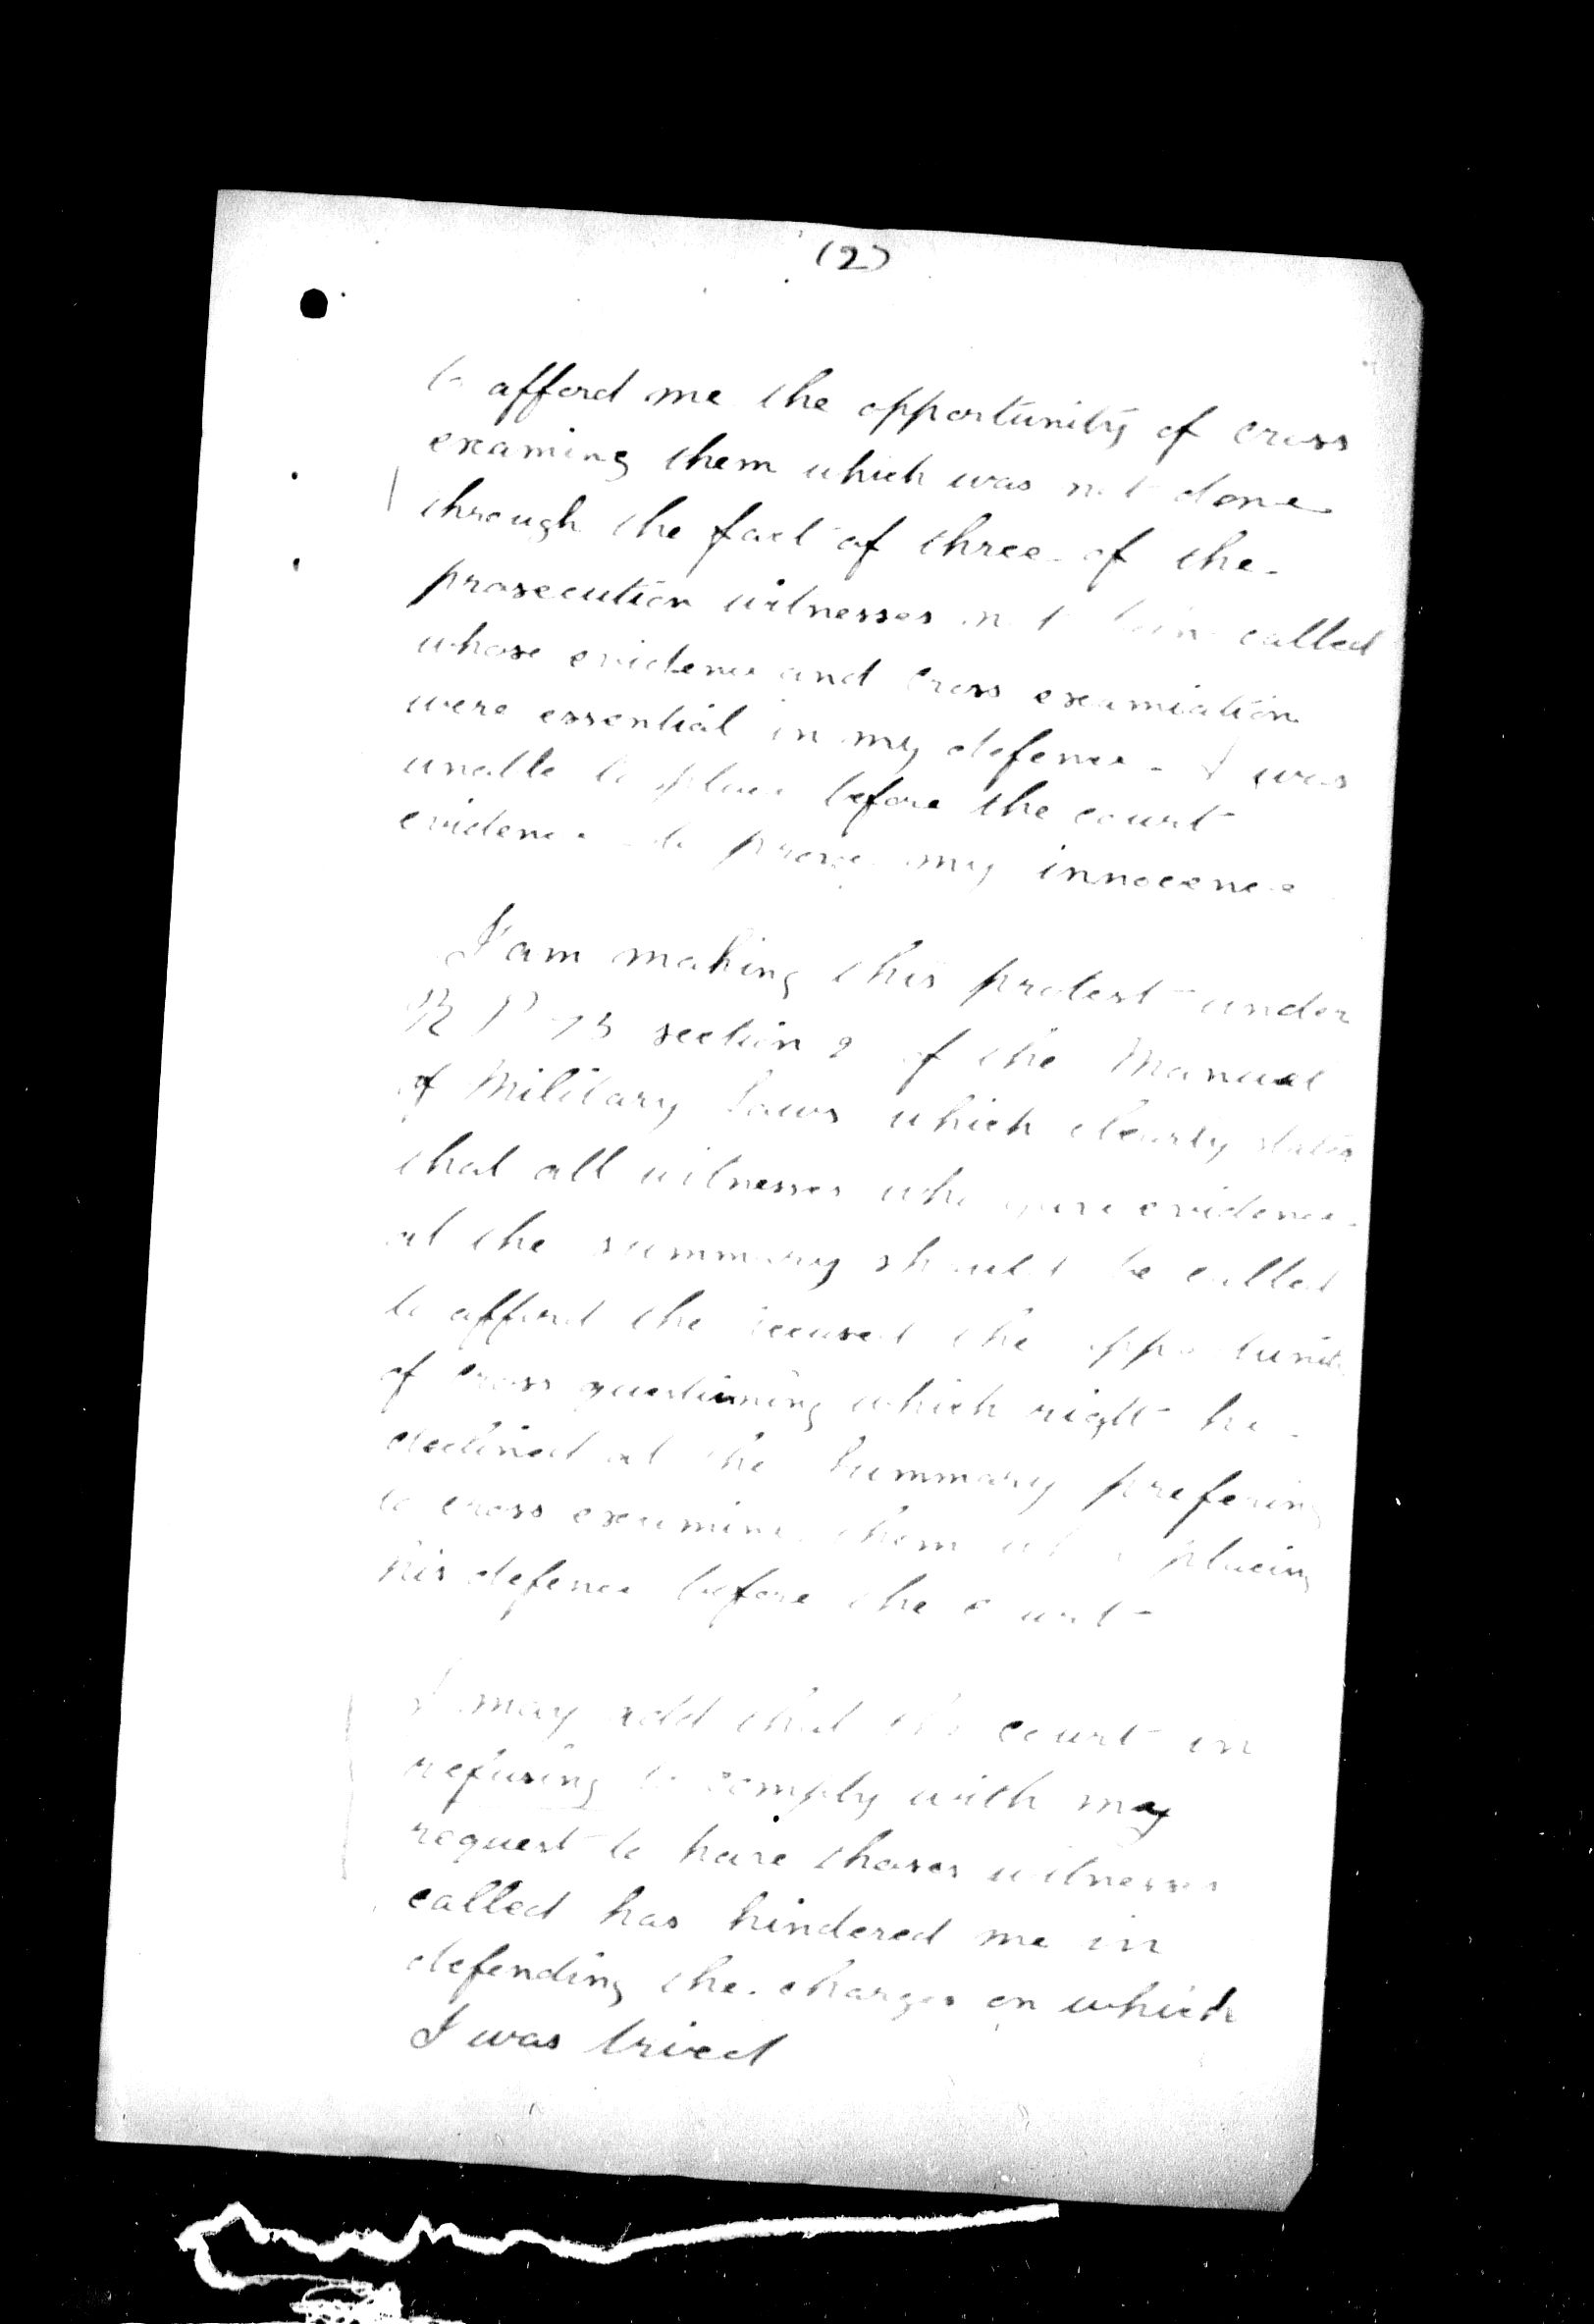 (2)
to afford me the opportunity of cross
examing them which was not done
through the fact of three of the
prosecution witnesses not being called
whose evidence and cross examiation
were essential in my defence. I was
unable to place before the court
evidence to prove my innocence
I am making this protest under
R P 75 section of the Manual
of Military Laws which clearly states
that all witnesses who gave evidence
at the summary should be called
to afford the accused the opportunity
of cross questioning which right he
declined at the Summary prefering
to cross examine them placing
his defence before the court
I may add that the court in
refusing to comply with my
request to have thoses witnesses
called has hindered me in
defending the charges on which
I was tried